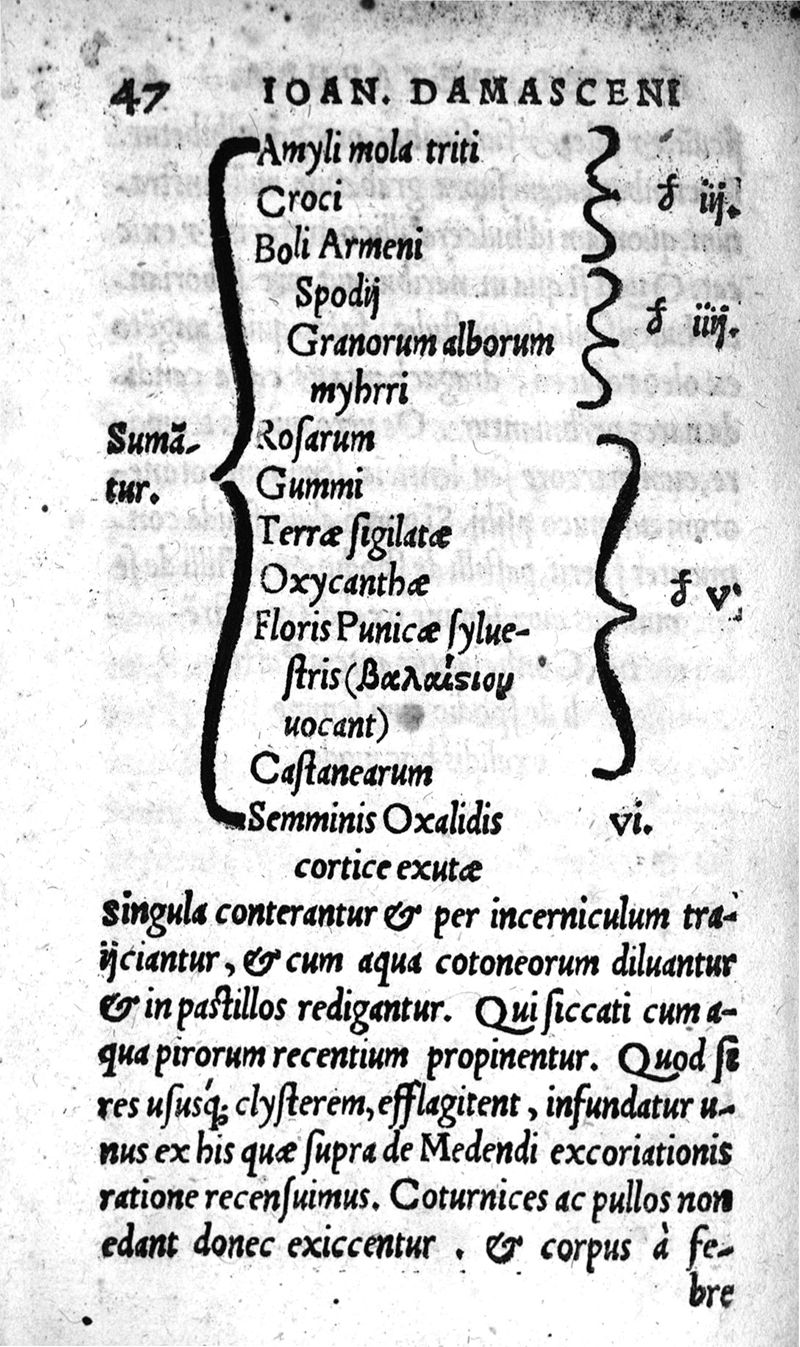 47 IOAN. DAMASCENI
Amyli mola triti
Croci ʄ iij.
Boli Armeni
Spodij
Granorum alborum ʄ iiij.
myhrri
Rosarum
Sumã-
tur.
Gummi
Terræ ſigilatæ
Oxycanthæ
ʄ v.
Floris Punicæ ſylue-
ſtris (
uocant)
Caſtanearum
Semminis Oxalidis vi.
cortice exutæ
singula conterantur & per incerniculum tra-
ijciantur, & cum aqua cotoneorum diluantur
& in paſtillos redigantur. Qui ſiccati cum a-
qua pirorum recentium propinentur. Quod ſi
res uſusq́; clyſterem, efflagitent, infundatur u-
nus ex his quæ ſupra de Medendi excoriationis
ratione recenſuimus. Coturnices ac pullos non
edant donec exiccentur . & corpus à fe-
bre